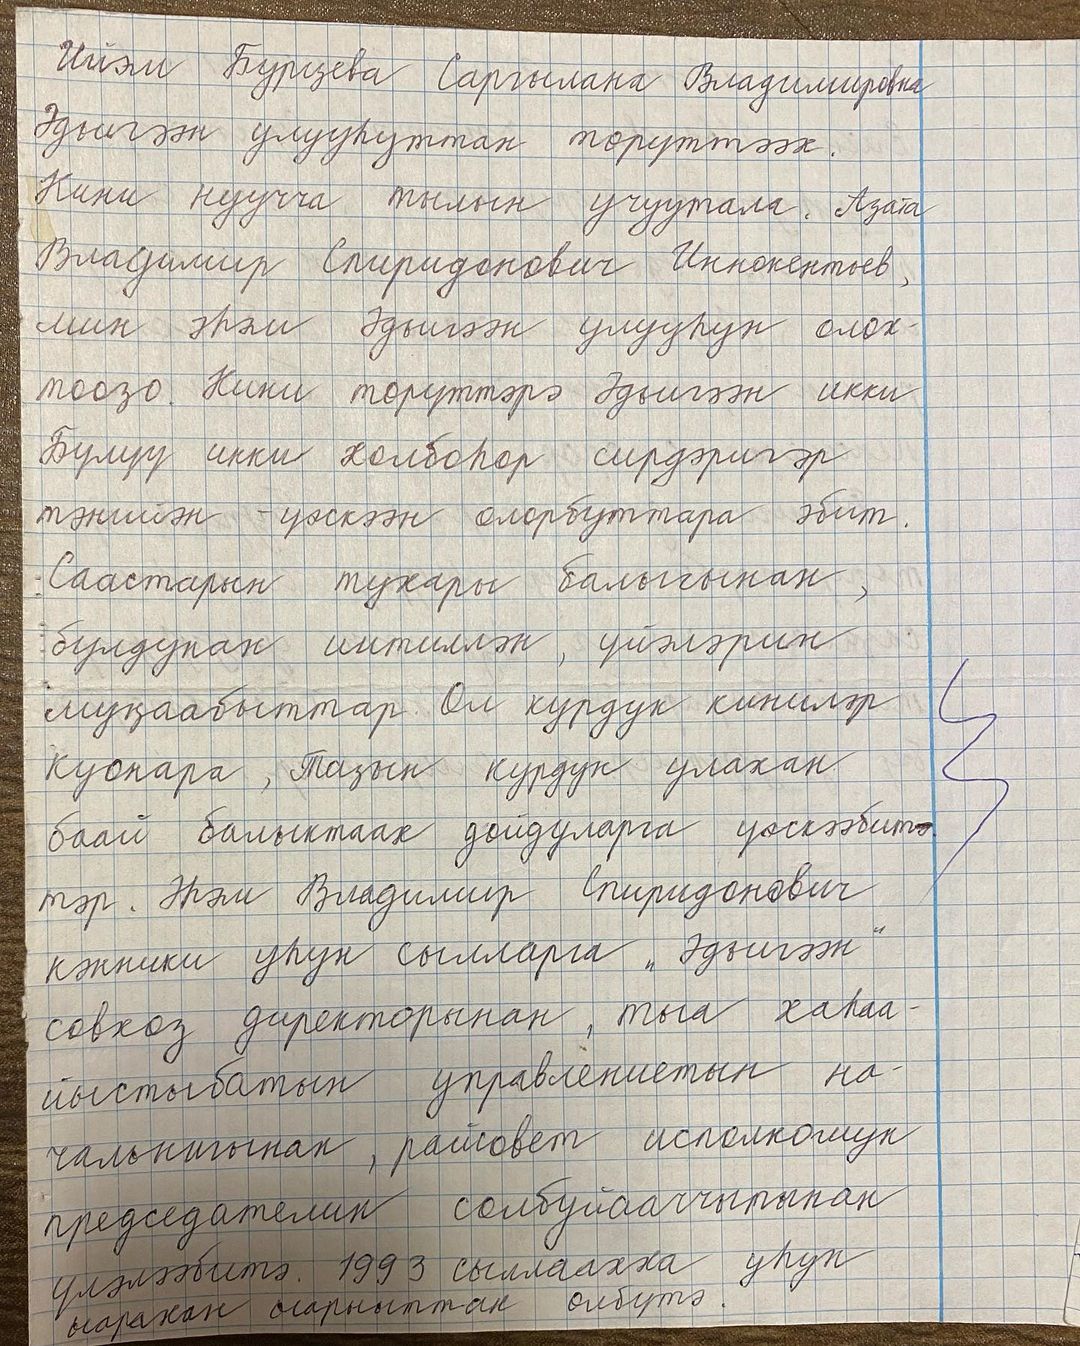 Ийэм Бурцева Саргылана Владимировна
Эдьигээн улууһуттан төрүттээх.
Кини нуучча тылын учуутала. Аҕата
Владимир Спиридонович Иннокентьев,
мин эһэм Эдьигээн улууһун олох-
тооҕо. Кини төрүттэрэ Эдьигээн икки
Бүлүү икки холбоһор сирдэригэр
тэнийэн - үөскээн олорбуттара эбит.
Саастарын тухары балыгынан,
булдунан иитиллэн, үйэлэрин
муҥаабыттар. Ол курдук кинилэр
Куонара, Таҕын курдук улахан
баай балыктаах дойдуларга үөскээбит-
тэр. Эһэм Владимир Спиридонович
кэнники уһун сылларга „Эдьигээн"
совхоз директорынан, тыа хаһаа-
йыстыбатын управлениетын на-
чальнигынан, райсовет исполкомун
председателин солбуйааччытынан
үлэлээбитэ. 1993 сыллаахха уһун
ыарахан ыарыыттан өлбүтэ.